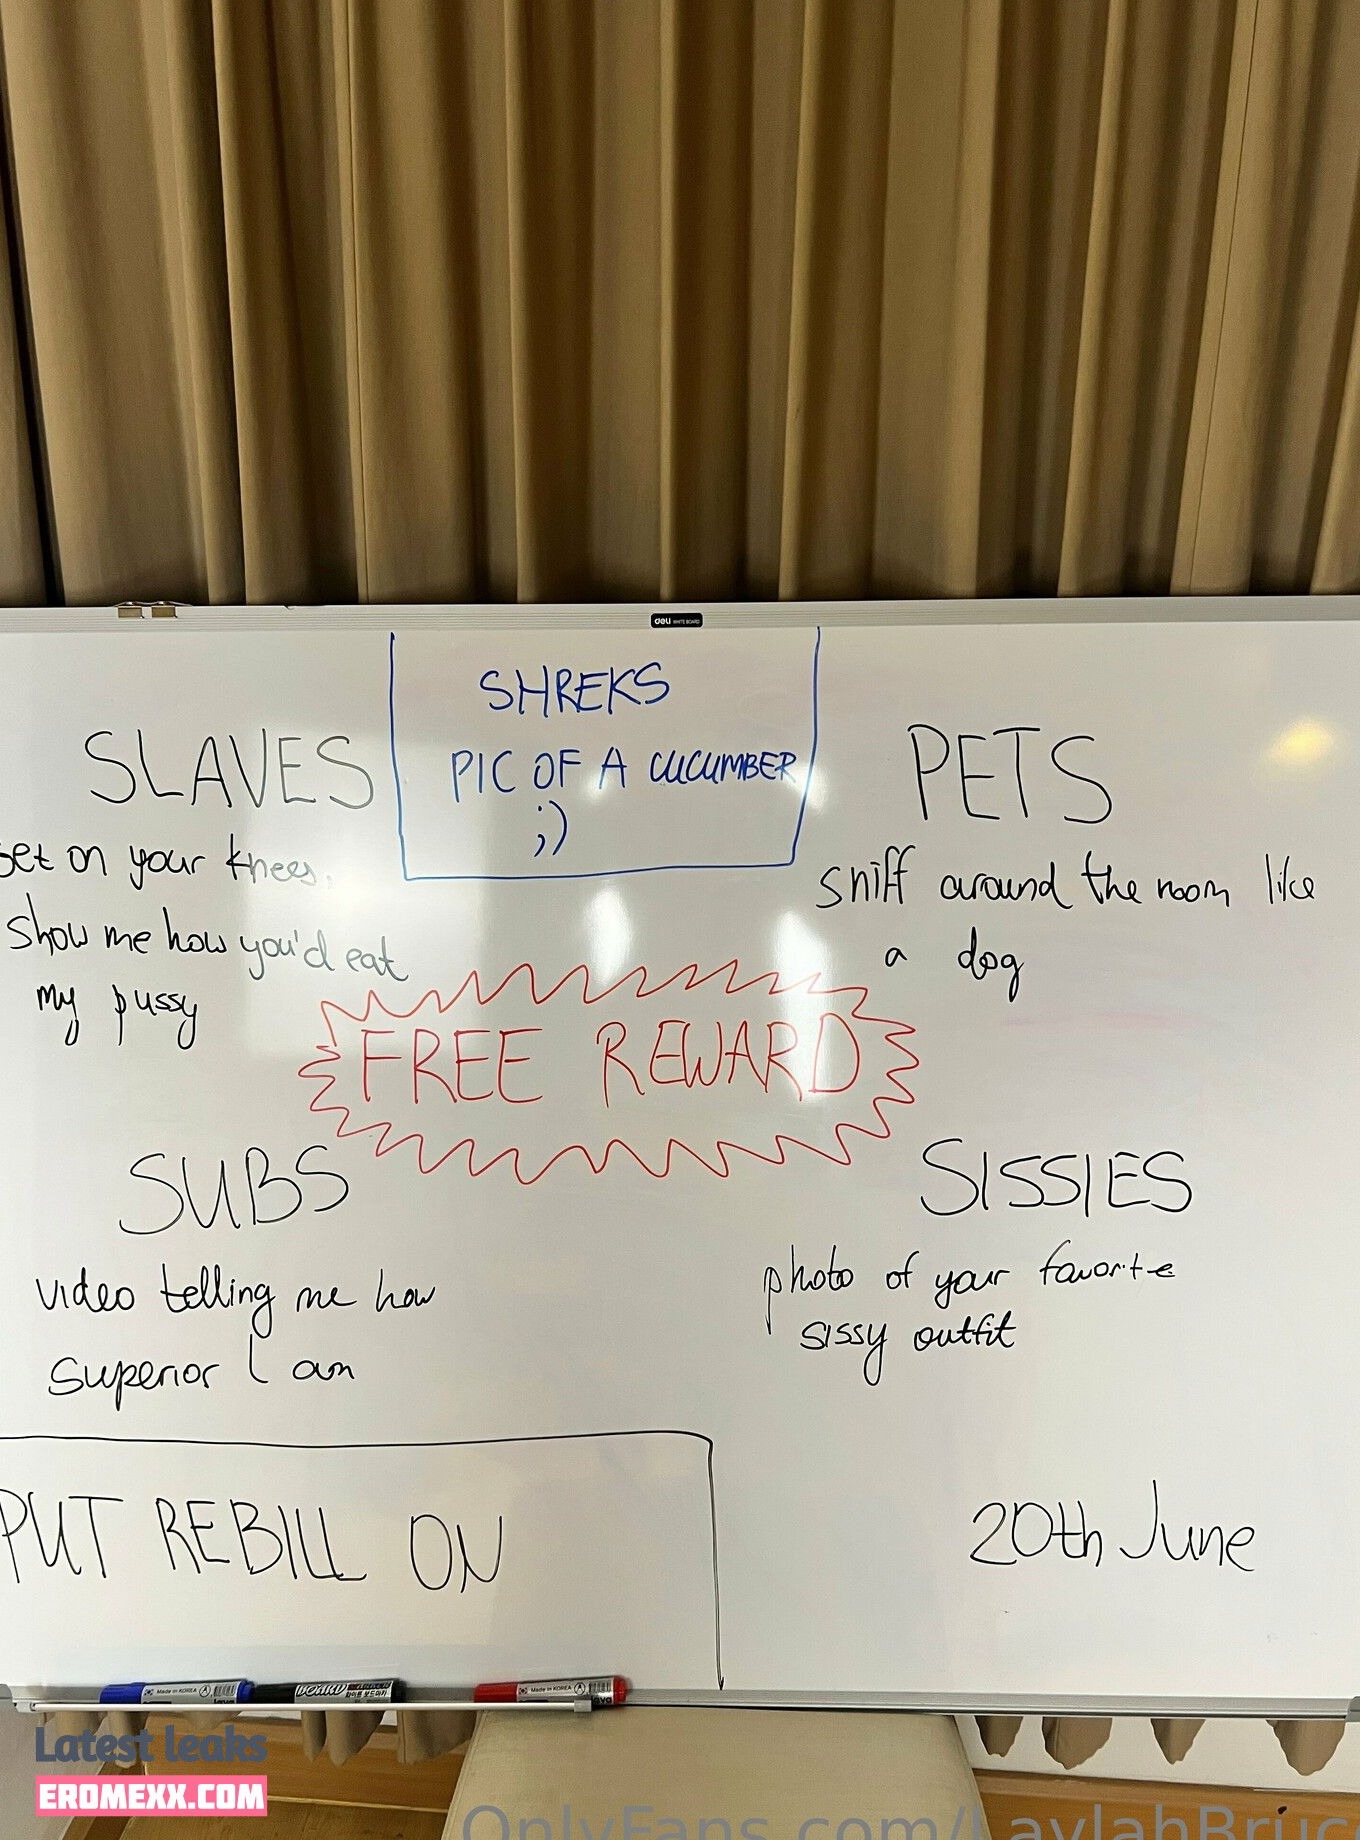 deli WHITE BOARD
SHREKS
PIC OF A CUCUMBER
;)
SLAVES
get on your knees.
show me how you'd eat
my pussy
PETS
sniff around the room like
a dog
FREE REWARD
SUBS
video telling me how
superior I am
SISSIES
photo of your favorite
sissy outfit
PUT REBILL ON
20th June
Made in KOREA
BOARD
화이트 보드마카
Made in KOREA
Latest leaks
EROMEXX.COM
OnlyFans.com/LaylahBruce